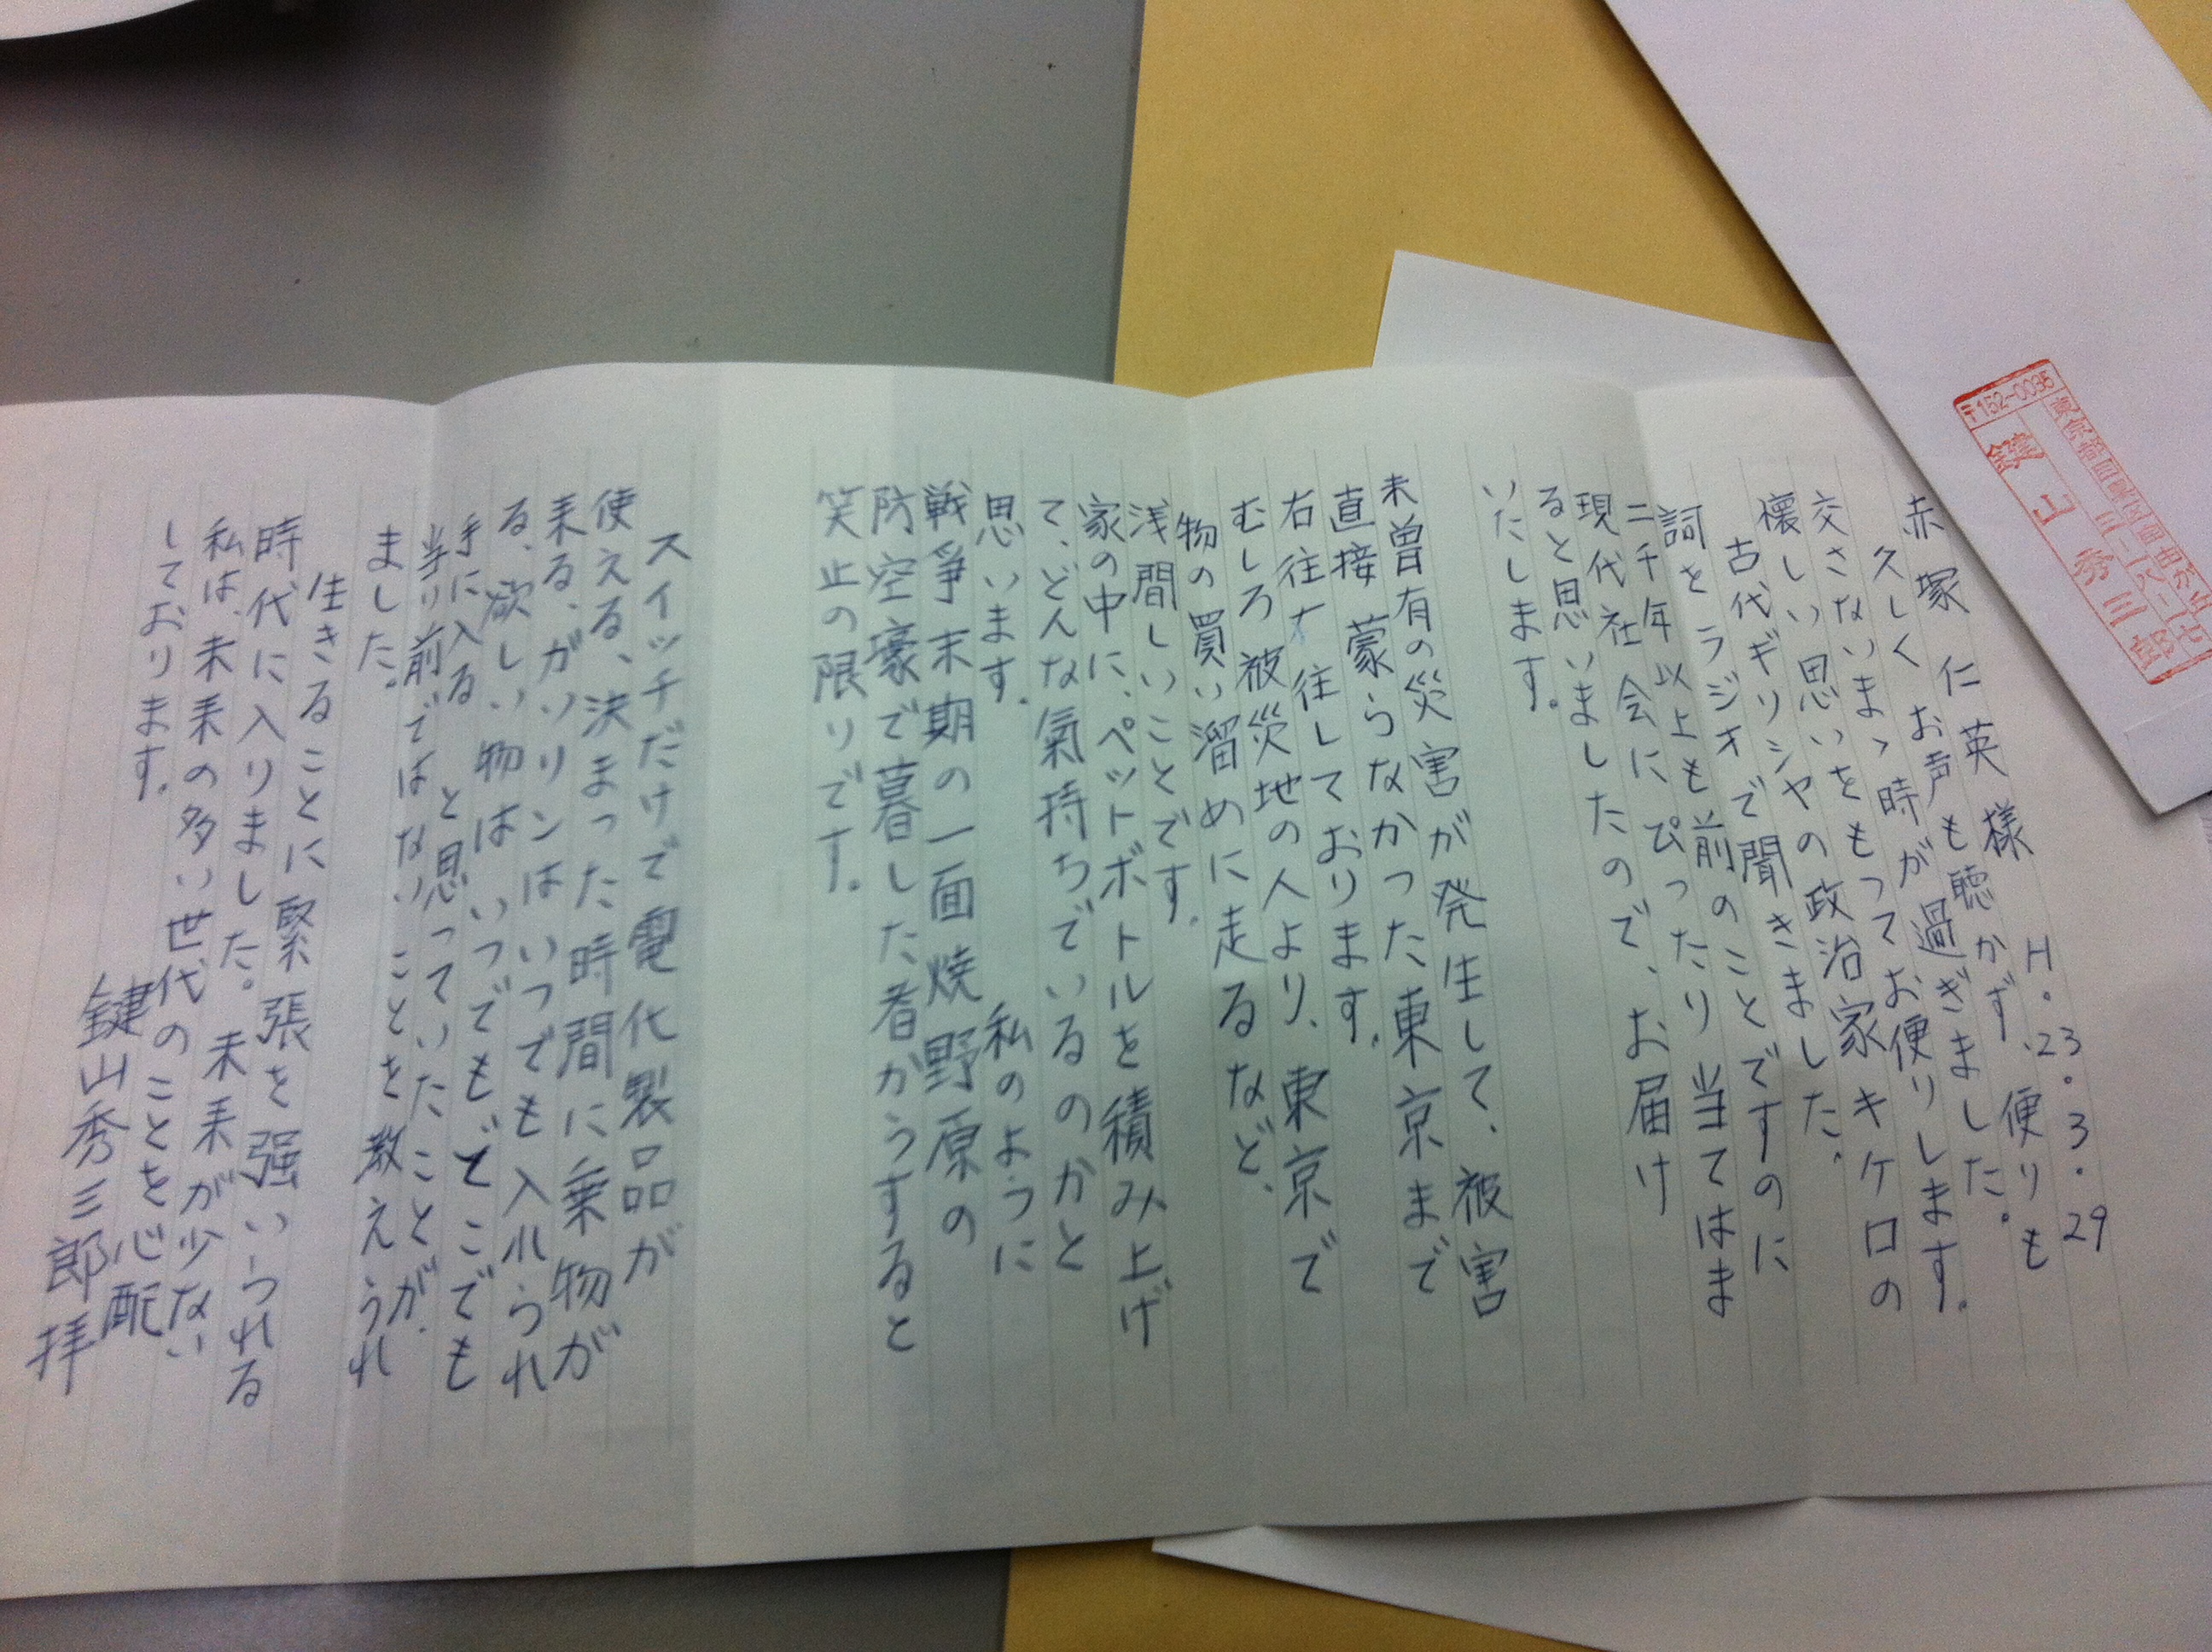 H.23.3.29
赤塚 仁英 様
久しくお声も聴かず、便りも
交さないまゝ時が過ぎました。
懐しい思いをもってお便りします。
古代ギリシヤの政治家キケロの
詞をラジオで聞きました。
二千年以上も前のことですのに
現代社会にぴったり当てはま
ると思いましたので、お届け
いたします。
未曽有の災害が発生して、被害
直接蒙らなかった東京まで
右往左往しております。
むしろ被災地の人より、東京で
物の買い溜めに走るなど、
浅間しいことです。
家の中に、ペットボトルを積み上げ
て、どんな氣持ちでいるのかと
思います。 私のように
戦争末期の一面焼野原の
防空壕で暮した者からすると
笑止の限りです。
スイッチだけで電化製品が
使える、決まった時間に乗物が
来る、ガソリンはいつでも入れられ
る、欲しい物はいつでも、どこでも
手に入る と思っていたことが、
当り前ではないことを教えられ
ました。
生きることに緊張を強いられる
時代に入りました。未来が少ない
私は、未来の多い世代のことを心配
しております。
鍵山秀三郎拝
〒152-0035
鍵山秀三郎